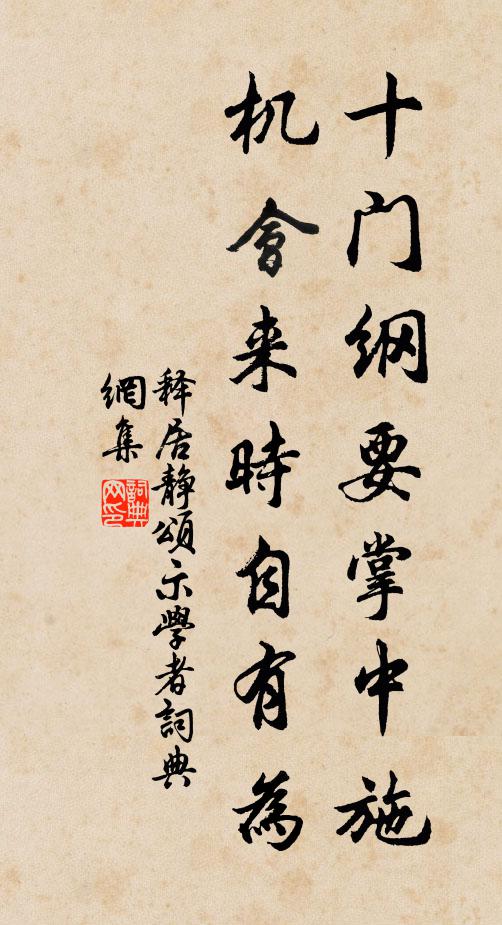 十门纲要掌中施
机會来時自有為
释居静頌示學者詞典
網集
詞典網印